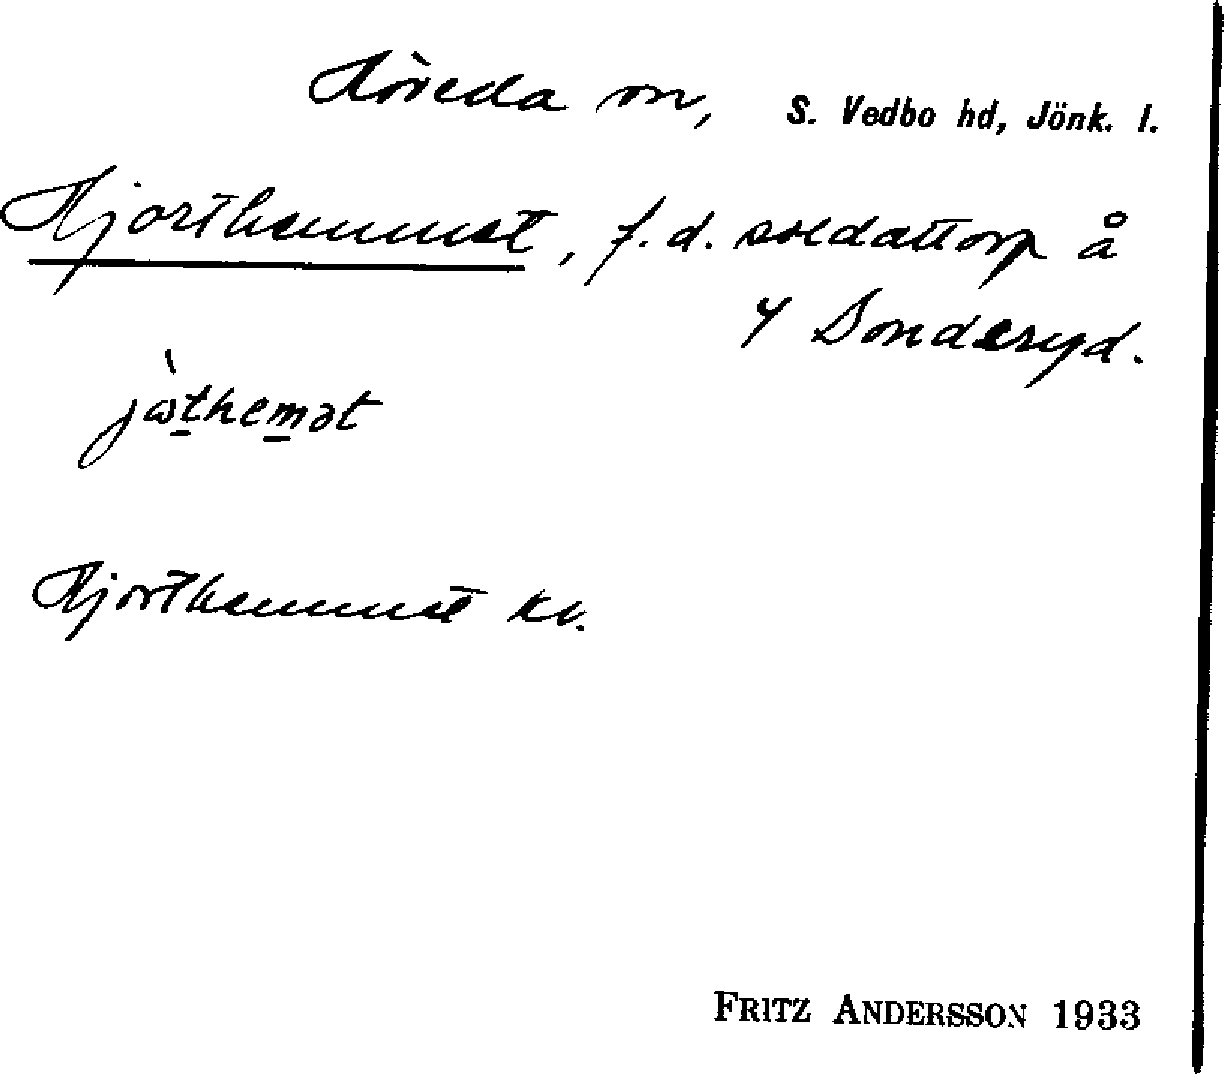 Höreda sn, S. Vedbo hd, Jönk. l.
Hjorthemmet, f.d. soldattorp å
Sonderyd.
Hjorthemmet kv.
FRITZ ANDERSSON 1933